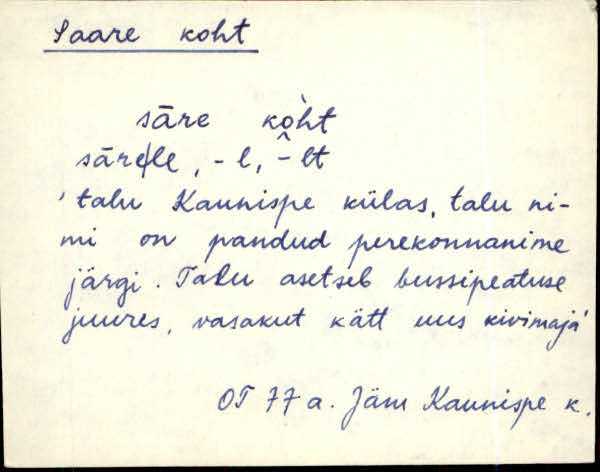 Saare koht
sāre kòht
sāre|le, -l, -lt
'talu Kaunispe külas, talu ni-
mi on pandud perekonnanime
järgi. Talu asetseb bussipeatuse
juures, vasakut kätt uus kivimaja'
OT 77 a. Jäm Kaunispe k.